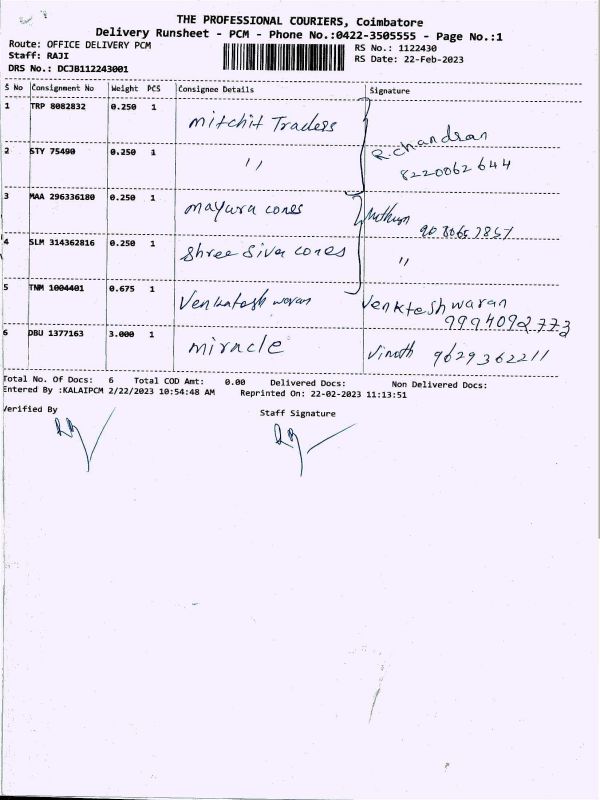 THE PROFESSIONAL COURIERS, Coimbatore
Delivery Runsheet - PCM - Phone No.:0422-3505555 - Page No.:1
Route: OFFICE DELIVERY PCM RS No.: 1122430
Staff: RAJI RS Date: 22-Feb-2023
DRS No.: DCJB112243001
S No Consignment No Weight PCS Consignee Details Signature
1 TRP 8082832 0.250 1 mitchit Traders
R.chandran
2 STY 75490 0.250 1 ,, 8220062644
3 MAA 296336180 0.250 1 mayura cones
4 SLM 314362816 0.250 1 Shree Siva cones ,,
5 TNM 1004401 0.675 1 Venkatesh waran Venktesh waran
9994092773
6 DBU 1377163 3.000 1 miracle Vinoth 9629362211
Total No. Of Docs: 6 Total COD Amt: 0.00 Delivered Docs: Non Delivered Docs:
Entered By :KALAIPCM 2/22/2023 10:54:48 AM Reprinted On: 22-02-2023 11:13:51
Verified By Staff Signature